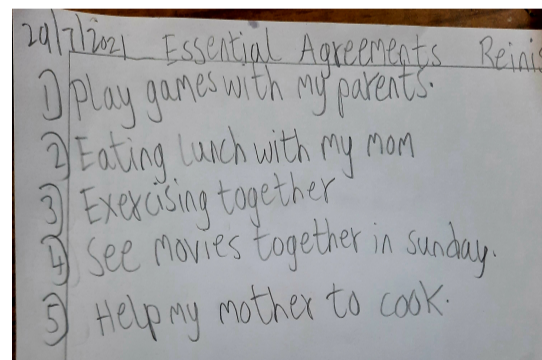 29/7/2021 Essential Agreements Reinis
1) Play games with my parents.
2) Eating lunch with my mom
3) Exercising together
4) See movies together in sunday.
5) Help my mother to cook.